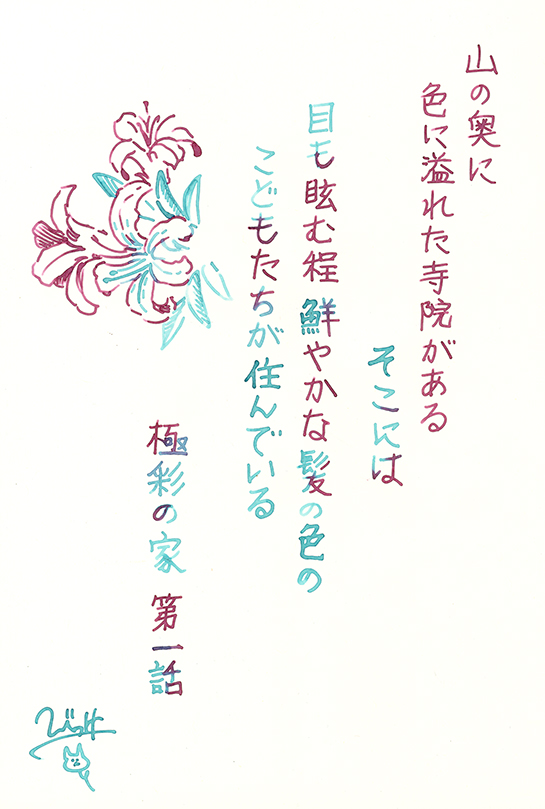 山の奥に
色に溢れた寺院がある
そこには
目も眩む程 鮮やかな髪の色の
こどもたちが住んでいる
極彩の家 第一話
びっけ